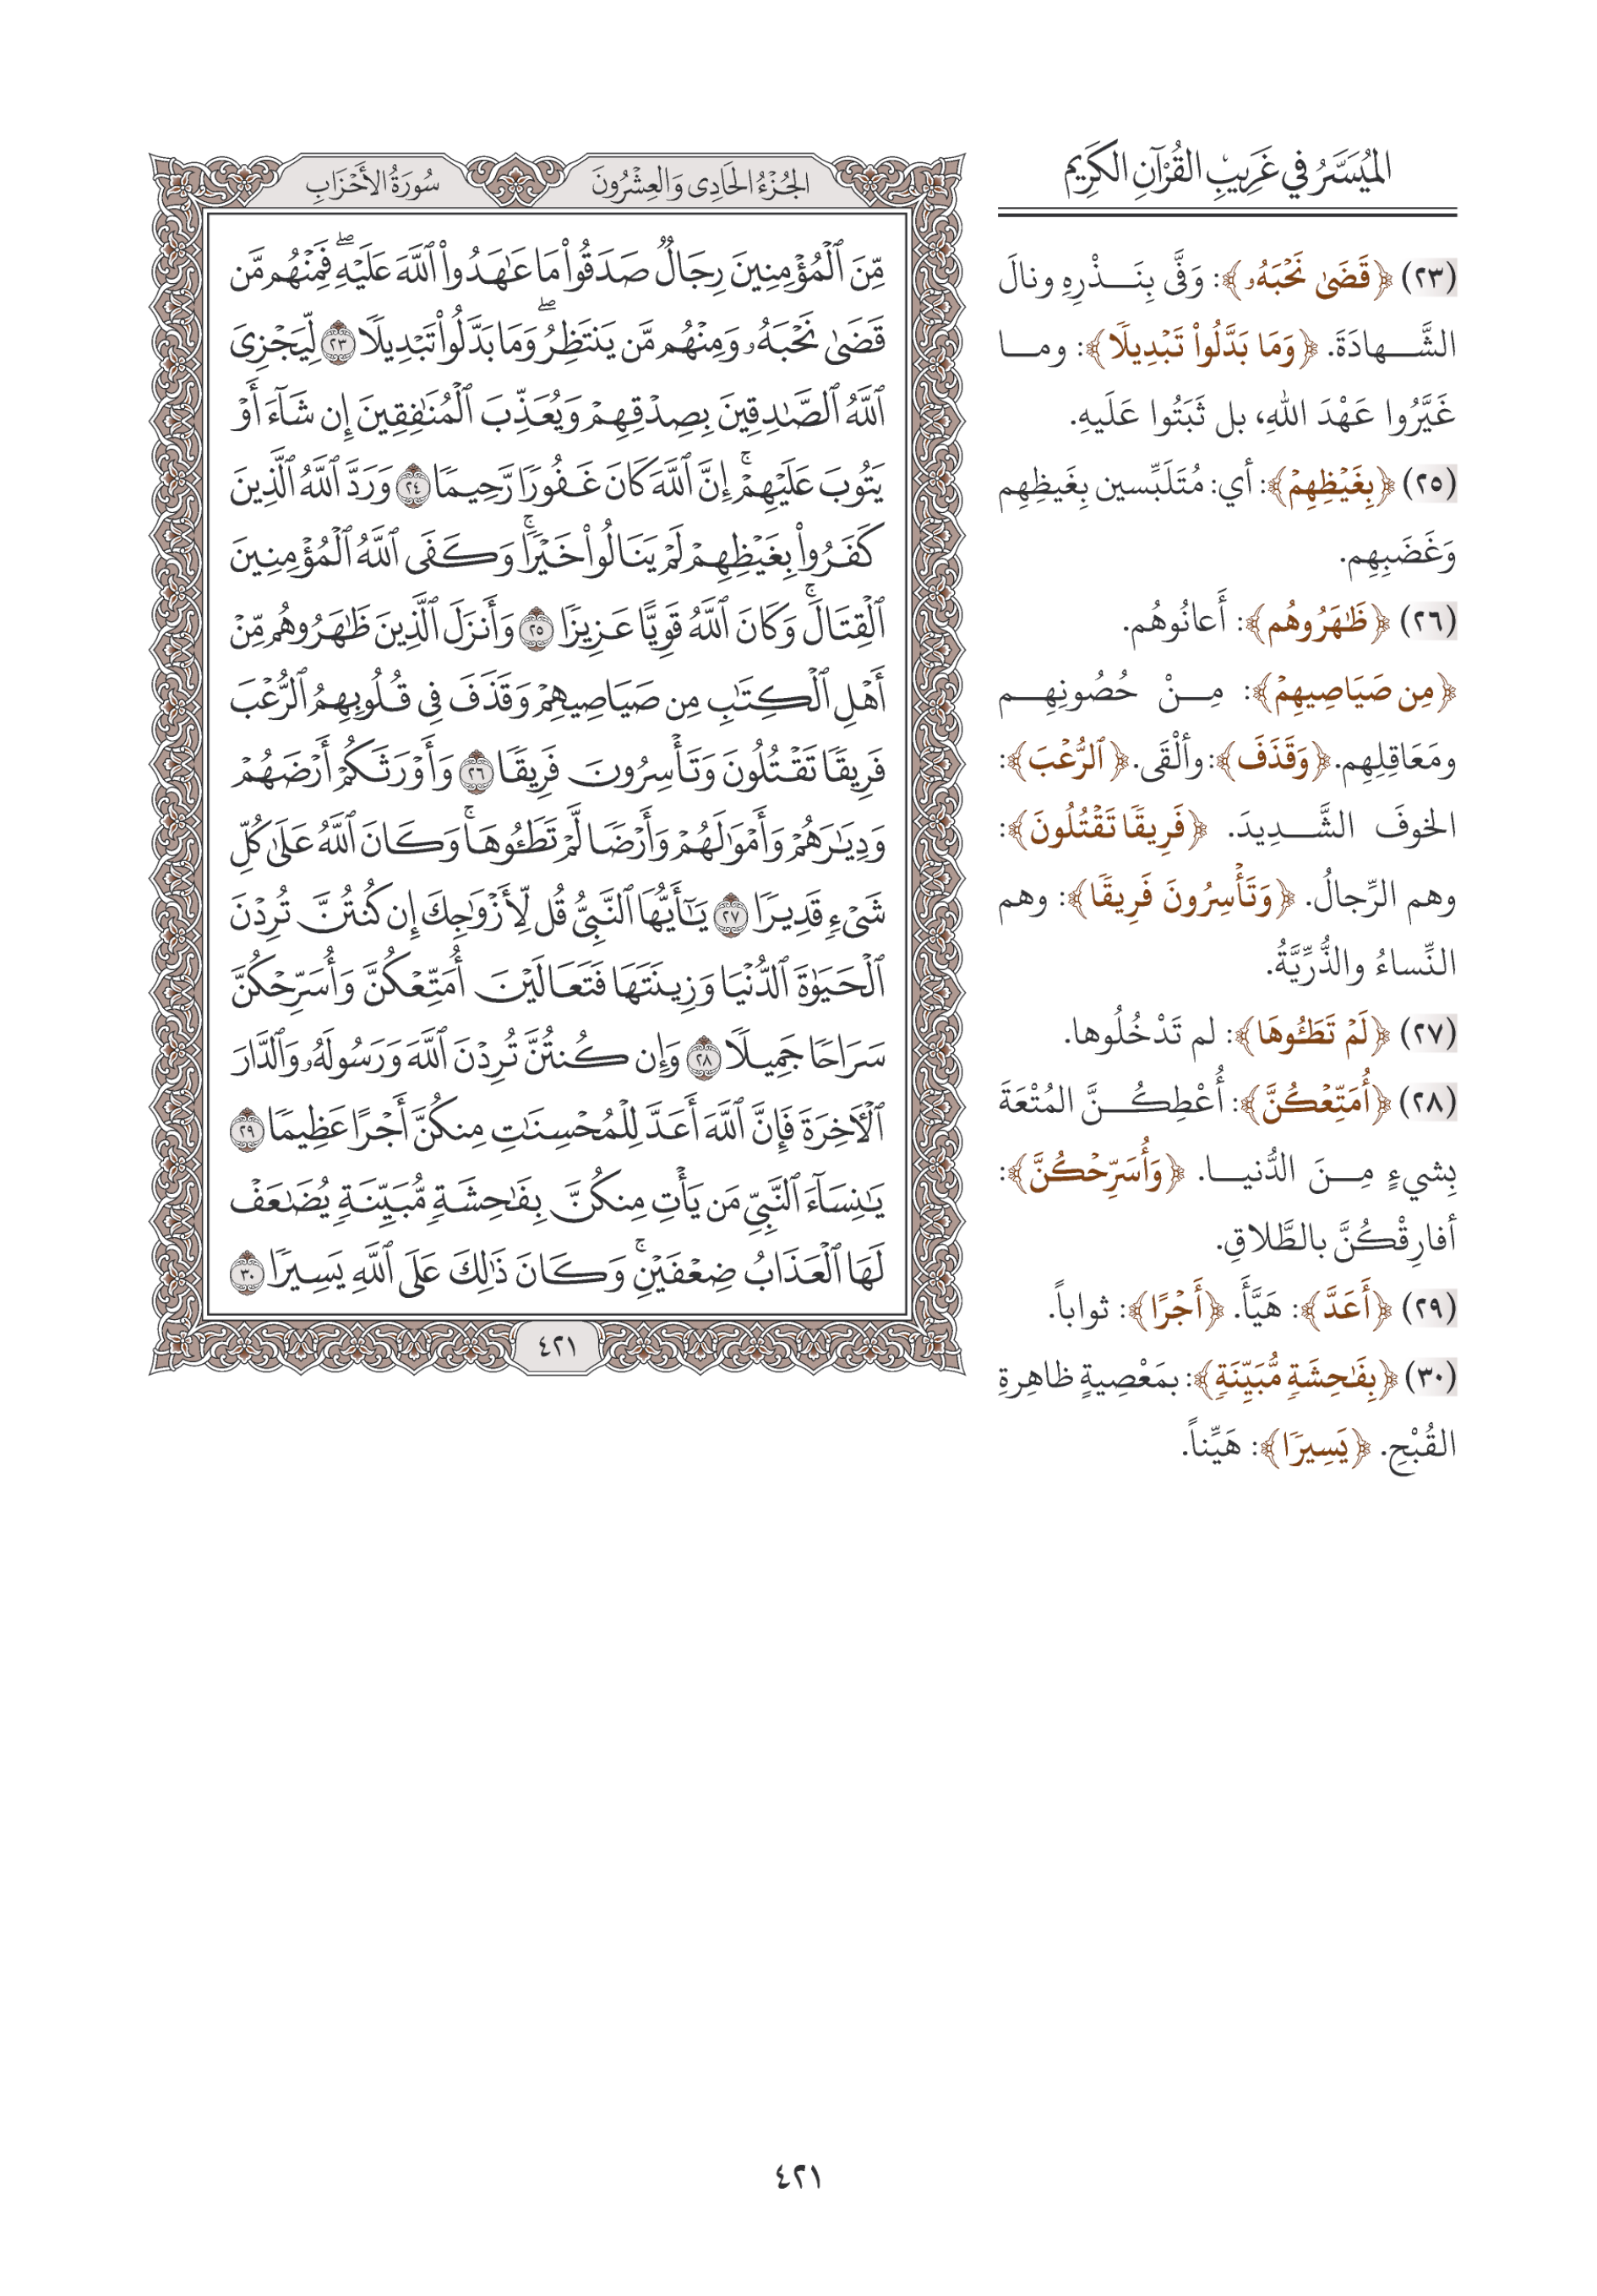 الميُسَّرُ في غَرِيبِ القُرْآنِ الكَرِيم
(٢٣) ﴿قَضَىٰ نَحۡبَهُۥ﴾: وَفَّى بِنَـذْرِهِ ونالَ
الشَّـهادَةَ. ﴿وَمَا بَدَّلُواْ تَبۡدِيلٗا﴾: ومـا
غَيَّرُوا عَهْدَ اللهِ، بل ثَبَتُوا عَلَيهِ.
(٢٥) ﴿بِغَيۡظِهِمۡ﴾: أي: مُتَلَبِّسين بِغَيظِهِم
وَغَضَبِهِم.
(٢٦) ﴿ظَٰهَرُوهُم﴾: أَعانُوهُم.
﴿مِن صَيَاصِيهِمۡ﴾: مِـنْ حُصُونِهِـم
ومَعَاقِلِهِم. ﴿وَقَذَفَ﴾: وألْقَى. ﴿ٱلرُّعۡبَ﴾:
الخوفَ الشَّـدِيدَ. ﴿فَرِيقٗا تَقۡتُلُونَ﴾:
وهم الرِّجالُ. ﴿وَتَأۡسِرُونَ فَرِيقٗا﴾: وهم
النِّساءُ والذُّرِّيَّةُ.
(٢٧) ﴿لَمۡ تَطَـُٔوهَا﴾: لم تَدْخُلُوها.
(٢٨) ﴿أُمَتِّعۡكُنَّ﴾: أُعْطِكُـنَّ المُتْعَةَ
بِشيءٍ مِـنَ الدُّنيـا. ﴿وَأُسَرِّحۡكُنَّ﴾:
أفارِقْكُنَّ بالطَّلاقِ.
(٢٩) ﴿أَعَدَّ﴾: هَيَّأَ. ﴿أَجۡرًا﴾: ثواباً.
(٣٠) ﴿بِفَٰحِشَةٖ مُّبَيِّنَةٖ﴾: بمَعْصِيةٍ ظاهِرةِ
القُبْحِ. ﴿يَسِيرٗا﴾: هَيِّناً.
الجُزْءُ الحَادِي وَالعِشْرُونَ
سُورَةُ الأَحْزَابِ
مِّنَ ٱلۡمُؤۡمِنِينَ رِجَالٞ صَدَقُواْ مَا عَٰهَدُواْ ٱللَّهَ عَلَيۡهِۖ فَمِنۡهُم مَّن
قَضَىٰ نَحۡبَهُۥ وَمِنۡهُم مَّن يَنتَظِرُۖ وَمَا بَدَّلُواْ تَبۡدِيلٗا ٢٣ لِّيَجۡزِيَ
ٱللَّهُ ٱلصَّٰدِقِينَ بِصِدۡقِهِمۡ وَيُعَذِّبَ ٱلۡمُنَٰفِقِينَ إِن شَآءَ أَوۡ
يَتُوبَ عَلَيۡهِمۡۚ إِنَّ ٱللَّهَ كَانَ غَفُورٗا رَّحِيمٗا ٢٤ وَرَدَّ ٱللَّهُ ٱلَّذِينَ
كَفَرُواْ بِغَيۡظِهِمۡ لَمۡ يَنَالُواْ خَيۡرٗاۚ وَكَفَى ٱللَّهُ ٱلۡمُؤۡمِنِينَ
ٱلۡقِتَالَۚ وَكَانَ ٱللَّهُ قَوِيًّا عَزِيزٗا ٢٥ وَأَنزَلَ ٱلَّذِينَ ظَٰهَرُوهُم مِّنۡ
أَهۡلِ ٱلۡكِتَٰبِ مِن صَيَاصِيهِمۡ وَقَذَفَ فِي قُلُوبِهِمُ ٱلرُّعۡبَ
فَرِيقٗا تَقۡتُلُونَ وَتَأۡسِرُونَ فَرِيقٗا ٢٦ وَأَوۡرَثَكُمۡ أَرۡضَهُمۡ
وَدِيَٰرَهُمۡ وَأَمۡوَٰلَهُمۡ وَأَرۡضٗا لَّمۡ تَطَـُٔوهَاۚ وَكَانَ ٱللَّهُ عَلَىٰ كُلِّ
شَيۡءٖ قَدِيرٗا ٢٧ يَٰٓأَيُّهَا ٱلنَّبِيُّ قُل لِّأَزۡوَٰجِكَ إِن كُنتُنَّ تُرِدۡنَ
ٱلۡحَيَوٰةَ ٱلدُّنۡيَا وَزِينَتَهَا فَتَعَالَيۡنَ أُمَتِّعۡكُنَّ وَأُسَرِّحۡكُنَّ
سَرَاحٗا جَمِيلٗا ٢٨ وَإِن كُنتُنَّ تُرِدۡنَ ٱللَّهَ وَرَسُولَهُۥ وَٱلدَّارَ
ٱلۡأٓخِرَةَ فَإِنَّ ٱللَّهَ أَعَدَّ لِلۡمُحۡسِنَٰتِ مِنكُنَّ أَجۡرًا عَظِيمٗا ٢٩
يَٰنِسَآءَ ٱلنَّبِيِّ مَن يَأۡتِ مِنكُنَّ بِفَٰحِشَةٖ مُّبَيِّنَةٖ يُضَٰعَفۡ
لَهَا ٱلۡعَذَابُ ضِعۡفَيۡنِۚ وَكَانَ ذَٰلِكَ عَلَى ٱللَّهِ يَسِيرٗا ٣٠
٤٢١
٤٢١